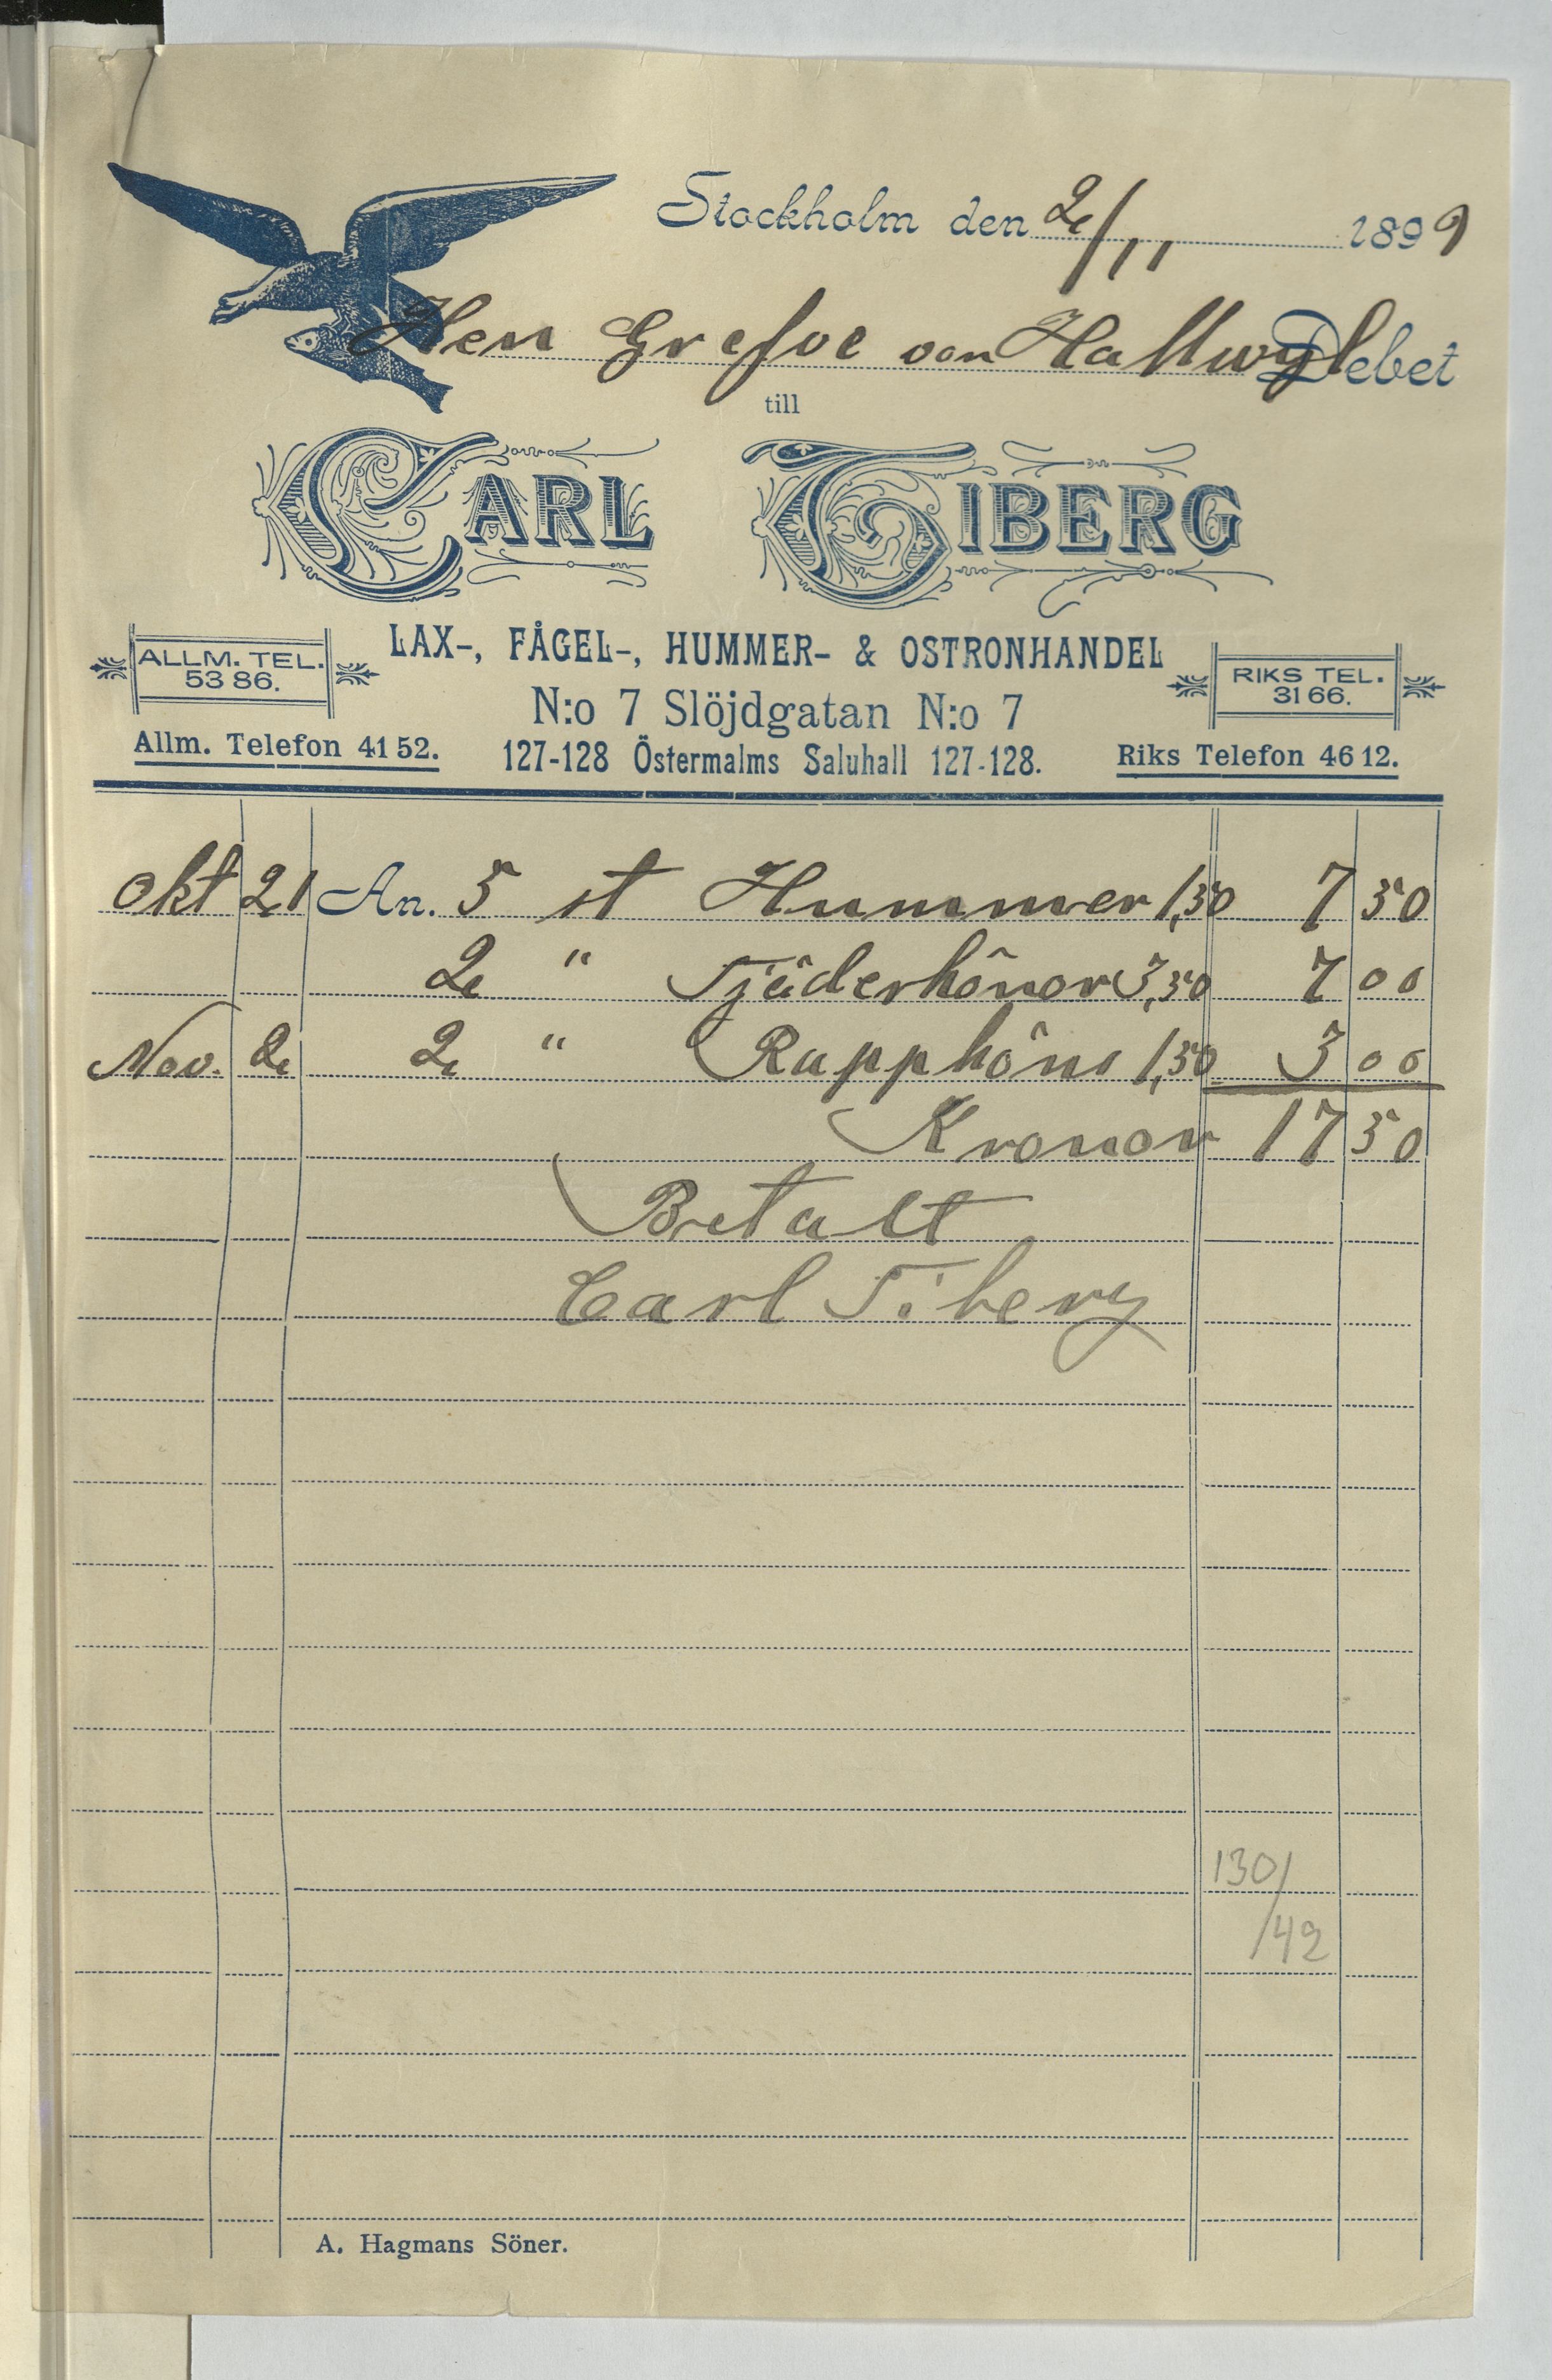 Stockholm den 2/11 1899
Herr Grefve von Hallwyl Debet
till
CARL TIBERG
LAX-, FÅGEL-, HUMMER- & OSTRONHANDEL
ALLM. TEL. 53 86.
RIKS TEL. 31 66.
N:o 7 Slöjdgatan N:o 7
Allm. Telefon 41 52. 127-128 Östermalms Saluhall 127-128. Riks Telefon 46 12.
Okt 21 An. 5 st Hummer 1,50 7 50
2 " Tjäderhönor 3,50 7 00
Nov. 2 2 " Rapphöns 1,50 3 00
Kronor 17 50
Betalt
Carl Tiberg
130/
/42
A. Hagmans Söner.